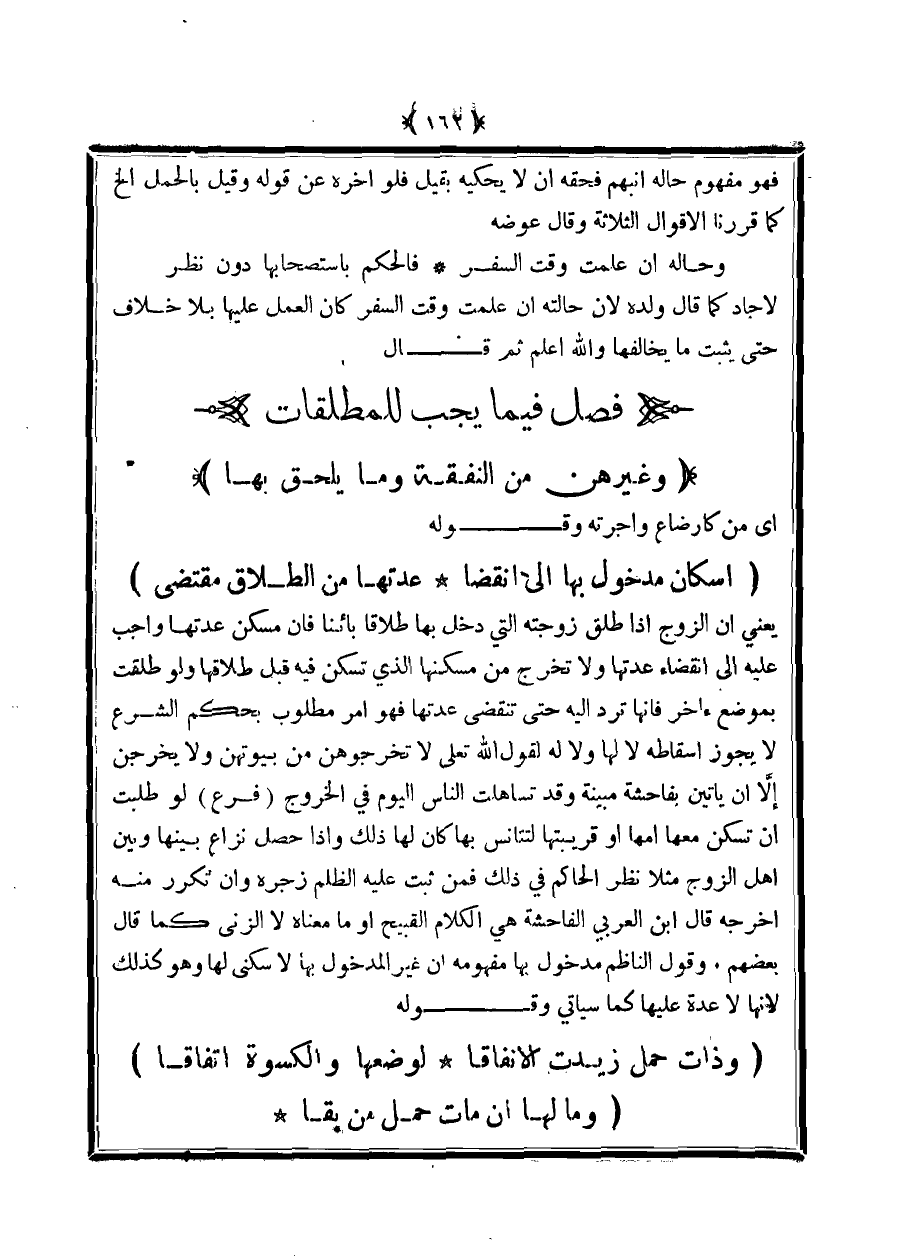 ﴿ ١٦٣ ﴾
فهو مفهوم حاله انبهم فحقه ان لا يحكيه بقيل فلو اخره عن قوله وقيل بالحمل الخ
كما قررنا الاقوال الثلاثة وقال عوضه
وحـاله ان علمت وقت السفـر * فالحكم باستصحابها دون نظر
لاجاد كما قال ولده لان حالته ان علمت وقت السفر كان العمل عليها بلا خـلاف
حتى يثبت ما يخالفها والله اعلم ثم قـــال
فصل فيما يجب للمطلقات
﴿ وغيرهن من النفقـة ومـا يلحـق بهـا ﴾
اى من كارضاع واجرته وقـــوله
( اسكان مدخول بها الى انقضا * عدتهـا من الطـلاق مقتضى )
يعني ان الزوج اذا طلق زوجته التي دخل بها طلاقا بائنا فان مسكن عدتهـا واجب
عليه الى انقضاء عدتها ولا تخرج من مسكنها الذي تسكن فيه قبل طلاقها ولو طلقت
بموضع ءاخر فانها ترد اليه حتى تنقضى عدتها فهو امر مطلوب بحكم الشـرع
لا يجوز اسقاطه لا لها ولا له لقول الله تعلى لا تخرجوهن من بيوتهن ولا يخرجن
إلّا ان ياتين بفاحشة مبينة وقد تساهلت الناس اليوم في الخروج ( فـرع ) لو طلبت
ان تسكن معها امها او قريبتها لتتانس بها كان لها ذلك واذا حصل نزاع بينها وبين
اهل الزوج مثلا نظر الحاكم في ذلك فمن ثبت عليه الظلم زجره وان تكرر منـه
اخرجه قال ابن العربي الفاحشة هي الكلام القبيح او ما معناه لا الزنى كما قال
بعضهم ٠ وقول الناظم مدخول بها مفهومه ان غير المدخول بها لا سكنى لها وهو كذلك
لانها لا عدة عليها كما سياتي وقـــوله
( وذات حمل زيـدت الانفاقا * لوضعها والكسوة اتفاقـا )
( وما لهـا ان مات حمـل من بقـا *